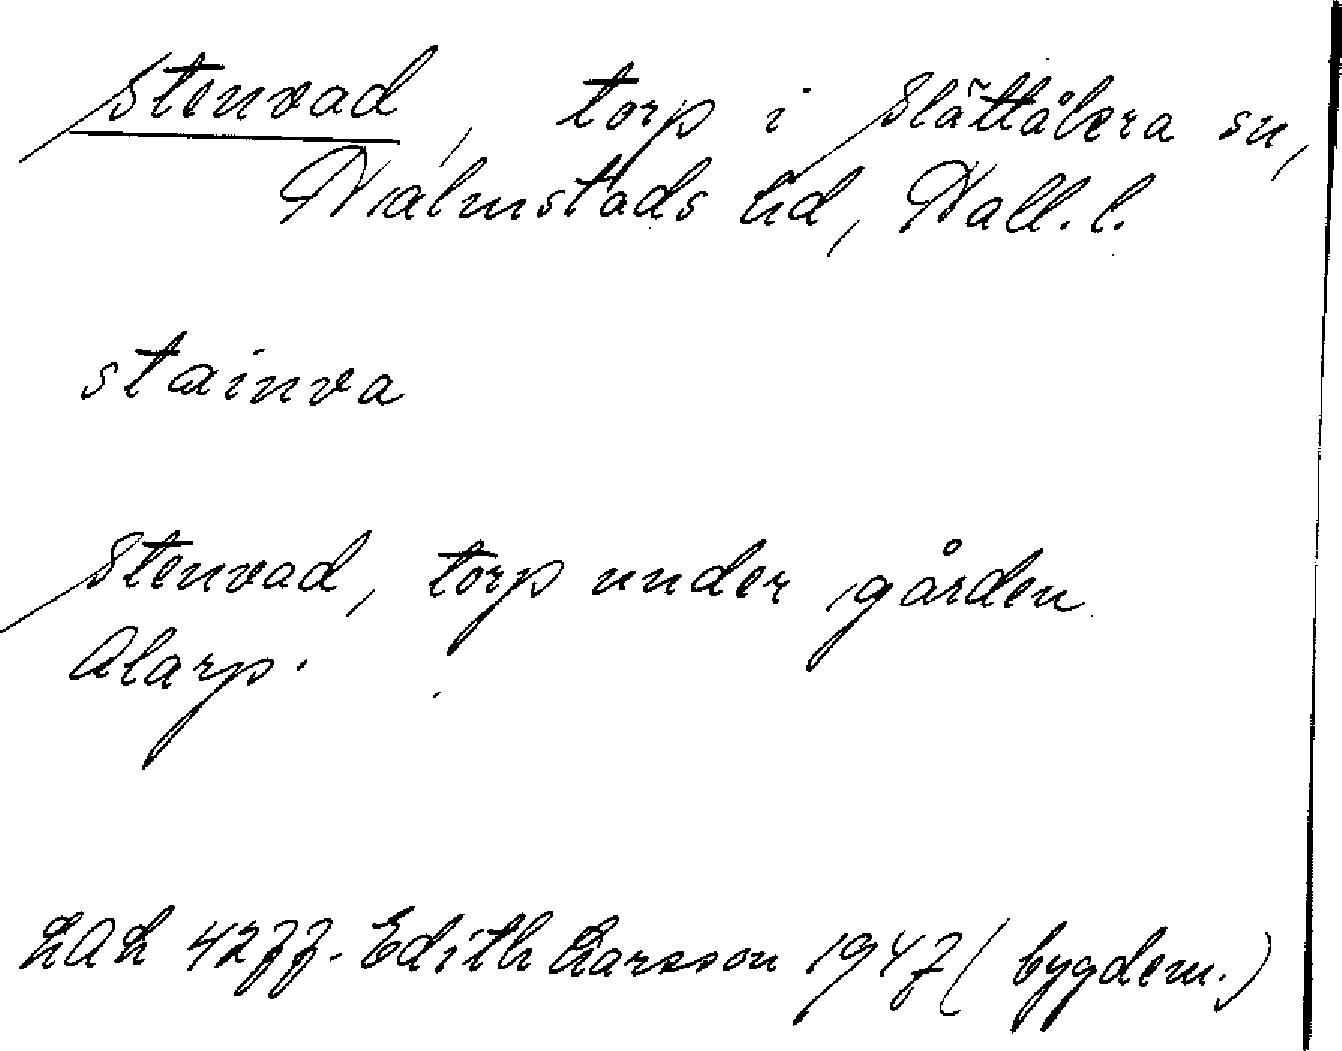 Stenvad, torp i Slättåkra sn,
Halmstads hd, Hall. l.
stainva
Stenvad, torp under gården
Alarp.
LAL 4277. Edith Larsson 1947 (bygdem.)